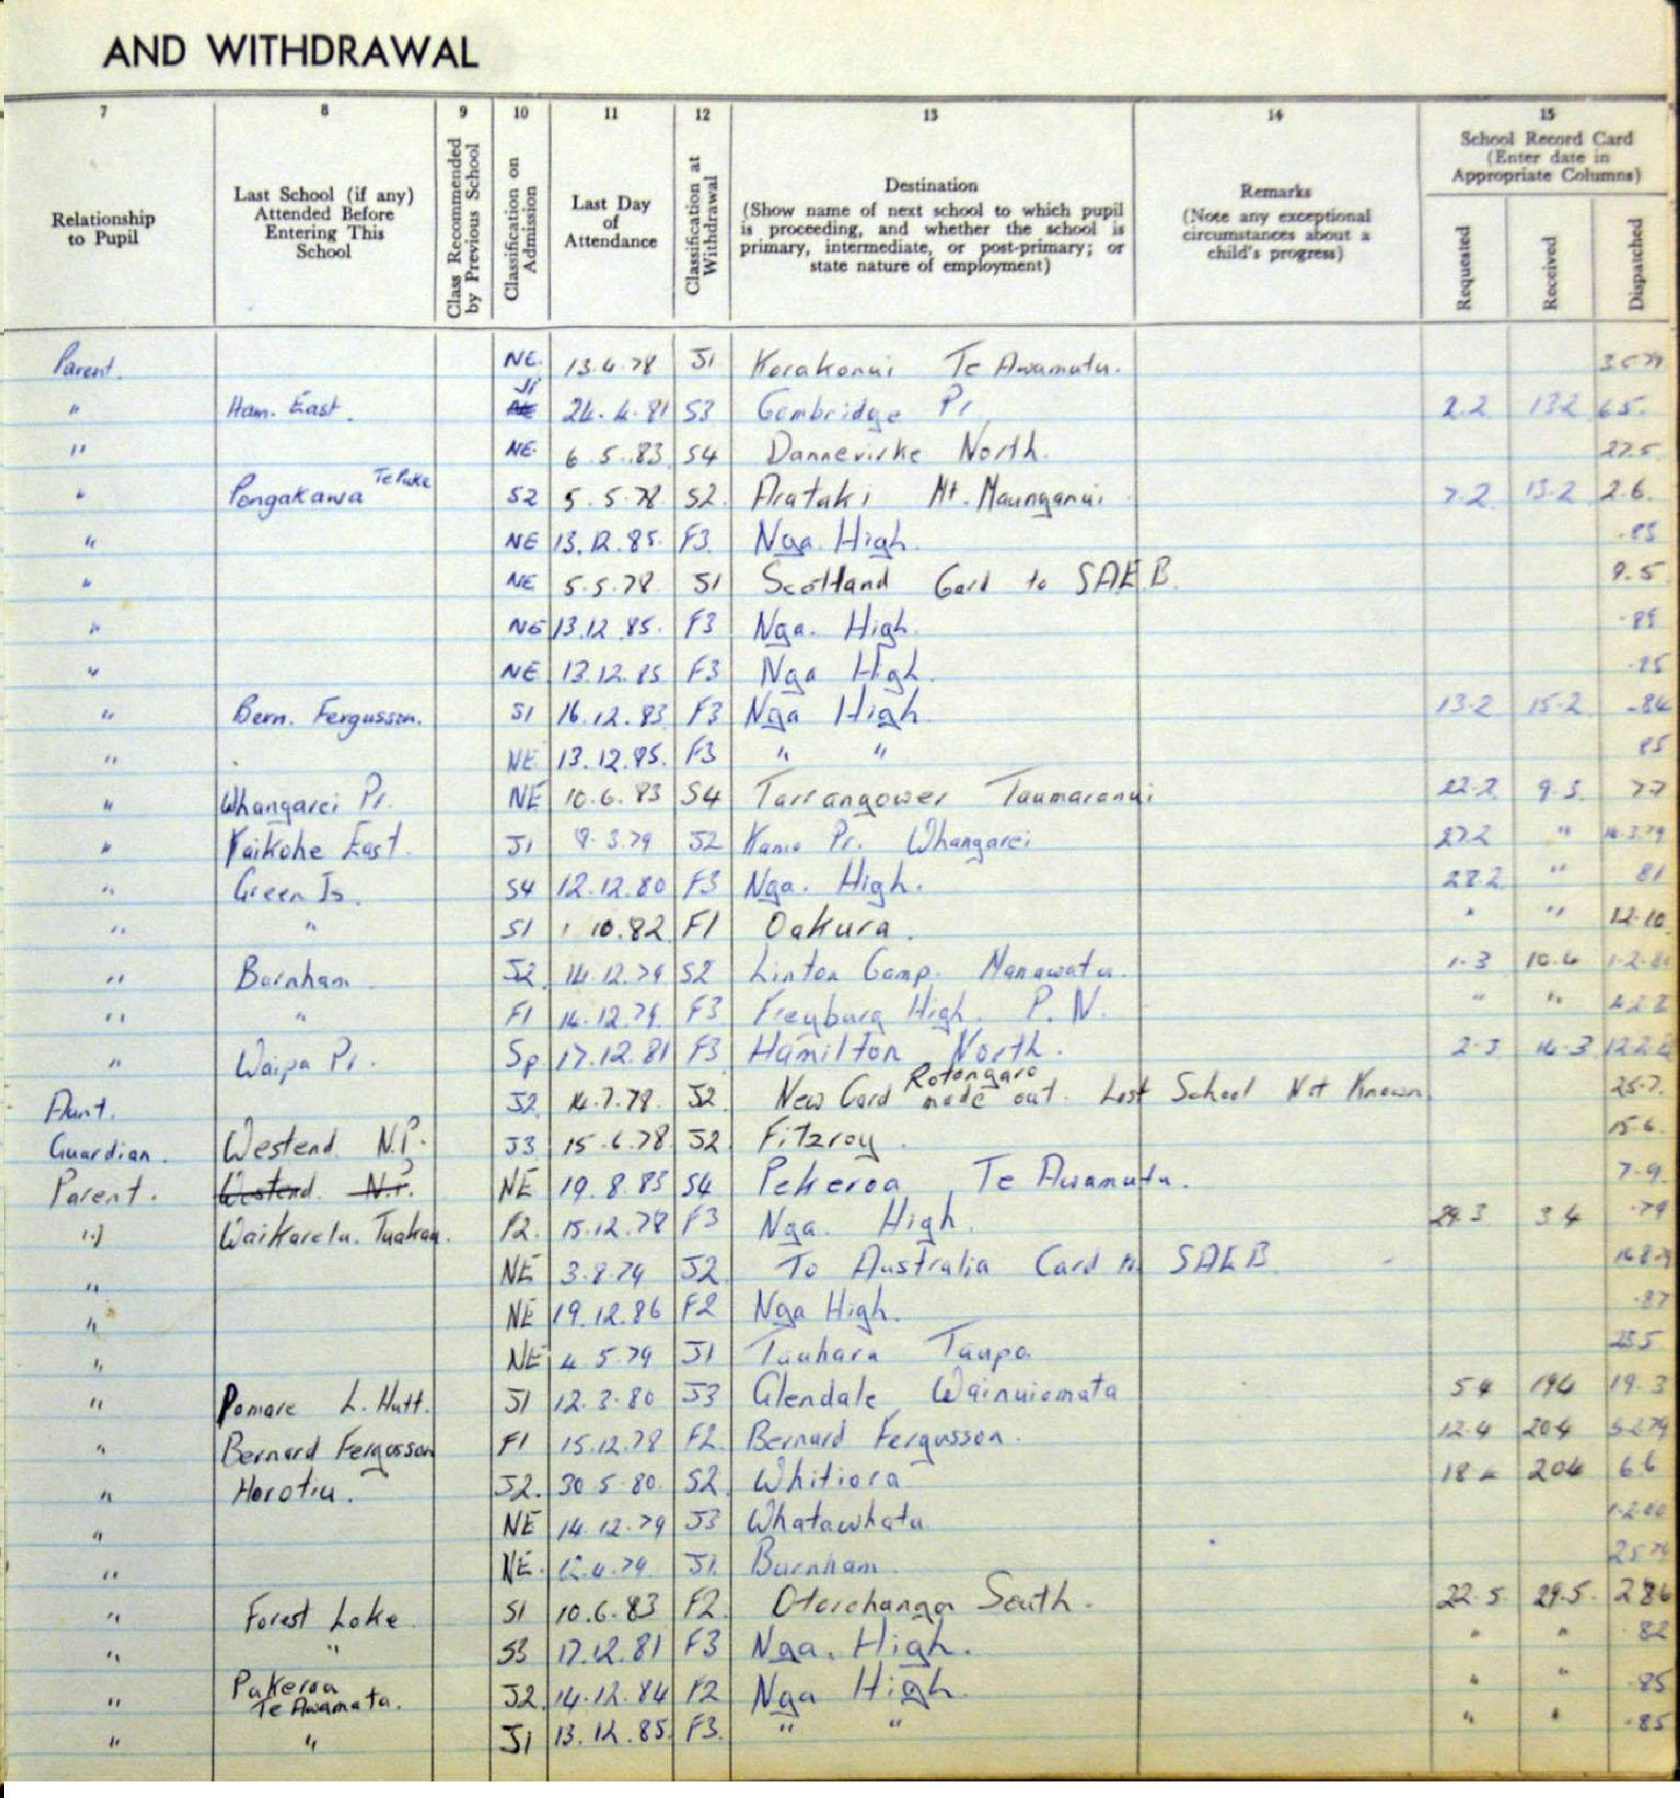 AND WITHDRAWAL
7 8 9 10 11 12 13 14 15
Relationship to Pupil
Last School (if any) Attended Before Entering This School
Class Recommended by Previous School
Classification on Admission
Last Day of Attendance
Classification at Withdrawal
Destination
(Show name of next school to which pupil is proceeding, and whether the school is primary, intermediate, or post-primary; or state nature of employment)
Remarks
(Note any exceptional circumstances about a child's progress)
School Record Card
(Enter date in Appropriate Columns)
Requested Received Dispatched
Parent. NE. 13.4.78 J1 Korakonui Te Awamutu.
" Ham. East. J1 24.4.81 S3 Cambridge Pr 2.2 13.2 6.5.
" NE. 6.5.83 S4 Dannevirke North. 27.5
" Pongakawa Te Puke S2 5.5.78 S2. Arataki Mt. Maunganui 7.2 13.2 2.6.
" NE 13.12.85. F3. Nga. High. .85
" NE 5.5.78. J1 Scotland Card to SAEB. 9.5
" NE 13.12.85. F3 Nga. High.
" NE 13.12.85 F3 Nga High. .85
" Bern. Fergusson. S1 16.12.83 F3 Nga High. 13.2 15.2 .84
" NE 13.12.85. F3 " " 85
" Whangarei Pr. NE 10.6.83 S4 Tarrangower Taumaranui 22.2 9.3. 7.7
" Kaikohe East. J1 9.3.79 J2 Kamo Pr. Whangarei 27.2 " 16.3.79
" Green Is. S4 12.12.80 F3 Nga. High. 28.2 " 81
" " S1 1 10.82 F1 Oakura. " " 12.10.
" Burnham J2 14.12.79 S2 Linton Camp. Manawatu. 1.3 10.4
" " F1 14.12.79. F3 Freyburg High. P.N. " "
" Waipa Pr. Sp 17.12.81 F3 Hamilton North. 2.3 14.3
Rotongaro
Aunt. J2 14.7.78. J2 New Card made out. Last School Not Known 25.7.
Guardian. Westend N.P. J3 15.6.78 J2. Fitzroy. 15.6.
Parent. Westend. N.P. NE 19.8.83 S4 Pekeroa Te Awamutu. 7.9.
" Waikaretu. Tuakau. F2. 15.12.78 F3 Nga. High. 29.3 3.4 .79
" NE 3.8.79 J2 To Australia Card to SAEB.
" NE 19.12.86 F2 Nga High. .87
" NE 4.5.79 J1 Tauhara Taupo. 23.5
" Pomare L. Hutt. J1 12.3.80 J3 Glendale Wainuiomata 5.4 19.4 19.3
" Bernard Fergusson F1 15.12.78 F2 Bernard Fergusson. 12.4 20.4 5.2.79
" Horotiu. J2. 30.5.80. S2. Whitiora 18.4 20.4 6.6
" NE 14.12.79 J3 Whatawhata
" NE. J1 Burnham.
" Forest Lake S1 10.6.83 F2. Otorohanga South. 22.5. 29.5. 28.6
" " S3 17.12.81 F3 Nga. High. " " .82
" Pakeroa Te Awamata. J2. 14.12.84 F2 Nga High. " " .85
" " J1 13.12.85. F3. " " " " .85